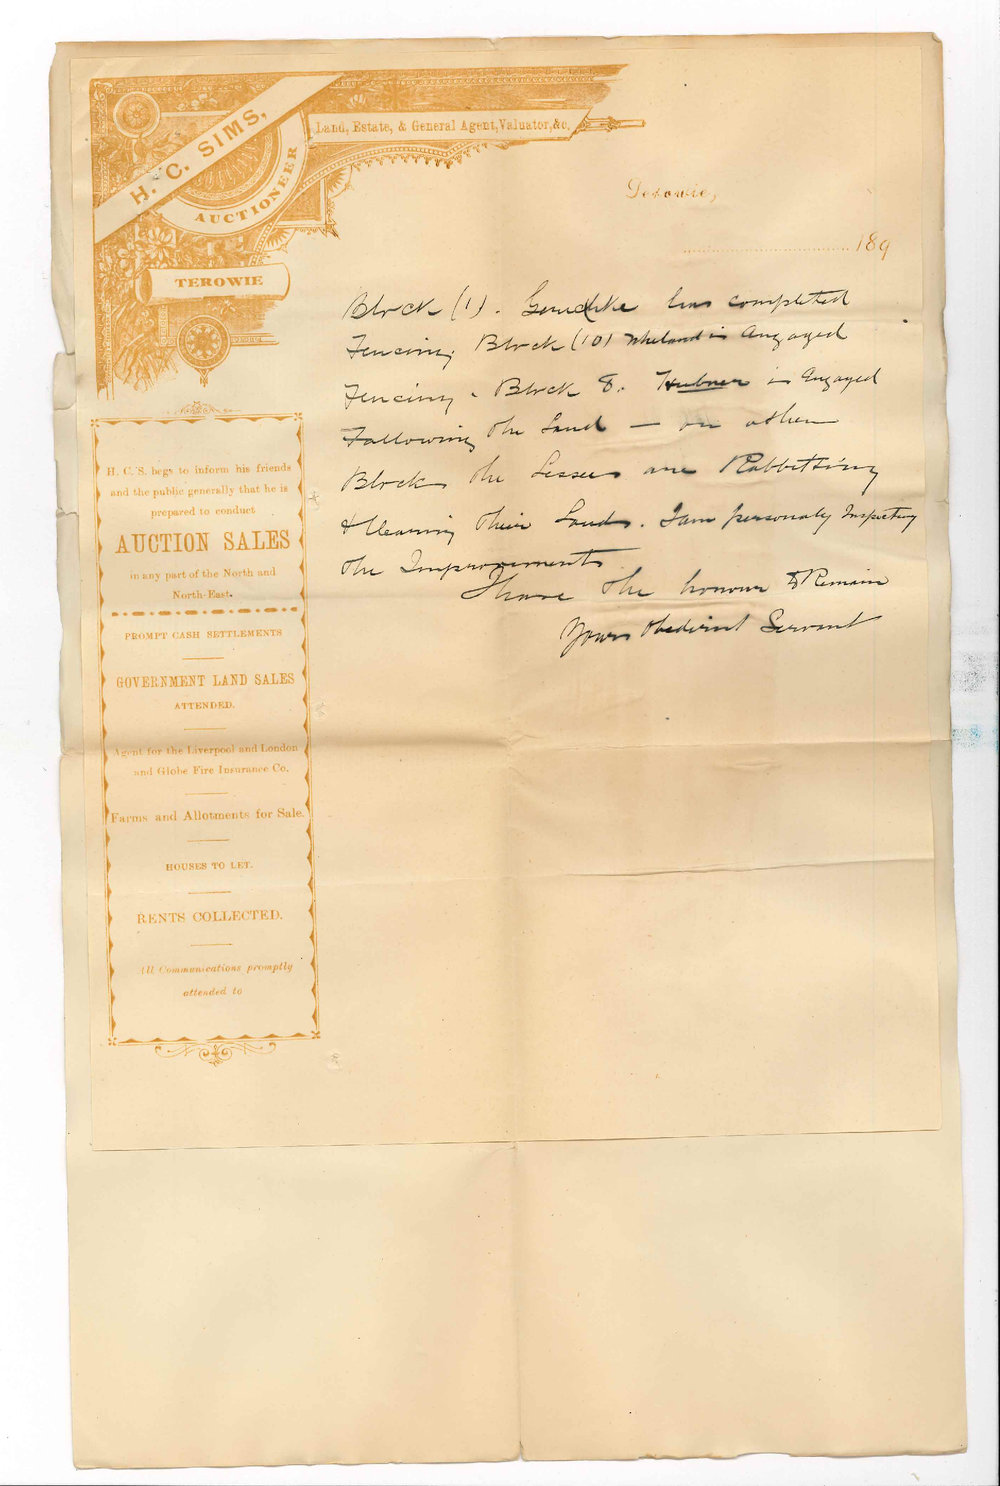 H. C. SIMS,
AUCTIONEER
Land, Estate, & General Agent, Valuator, &c.
TEROWIE
Terowie,
189
H. C. S. begs to inform his friends
and the public generally that he is
prepared to conduct
AUCTION SALES
in any part of the North and
North-East.
PROMPT CASH SETTLEMENTS
GOVERNMENT LAND SALES
ATTENDED.
Agent for the Liverpool and London
and Globe Fire Insurance Co.
Farms and Allotments for Sale.
HOUSES TO LET.
RENTS COLLECTED.
All Communications promptly
attended to
Block (1). has completed
Fencing Block (10) is Engaged
Fencing. Block 8. Hubner is Engaged
Fallowing the Land — on other
Blocks the Lessees are Rabbitting
& Clearing their Lands. I am personaly Inspecting
the Improvements
I have the honour to Remain
Yours Obedient Servant